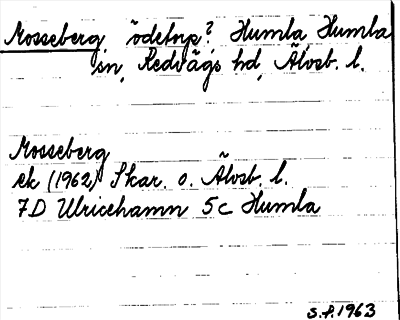 Mosseberg, ödetorp? Humla Humla
sn, Redvägs hd, Älvsb. l.
Mosseberg
ek (1962) Skar. o. Älvsb. l.
7D Ulricehamn 5c Humla
S.F. 1963